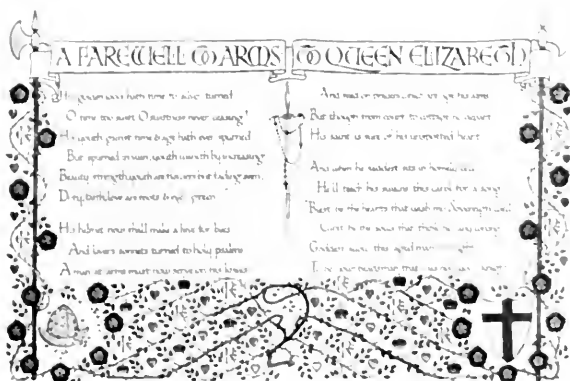 A FAREWELL TO ARMS TO QUEEN ELIZABETH
golden locks hath time to silver turned
O time too swift O swiftness never ceasing!
His youth gainst time & age hath ever spurned
But spurned in vain, youth waneth by increasing
Beauty strength youth are flowers but fading seen,
Duty faith love are roots & green
His helmet now shall make a hive for bees
And lovers sonnets turned to holy psalms
A man at arms must now serve on his knees
And feed on prayers his alms
But though from court to cottage he depart
His saint is sure of his unspotted heart
And when he saddest sits in homely cell
He'll teach his swains this carol for a song
Blest be the hearts that wish my Sovereign well
Curst be the souls that think her any wrong
Goddess allow this aged man
To be your beadsman that